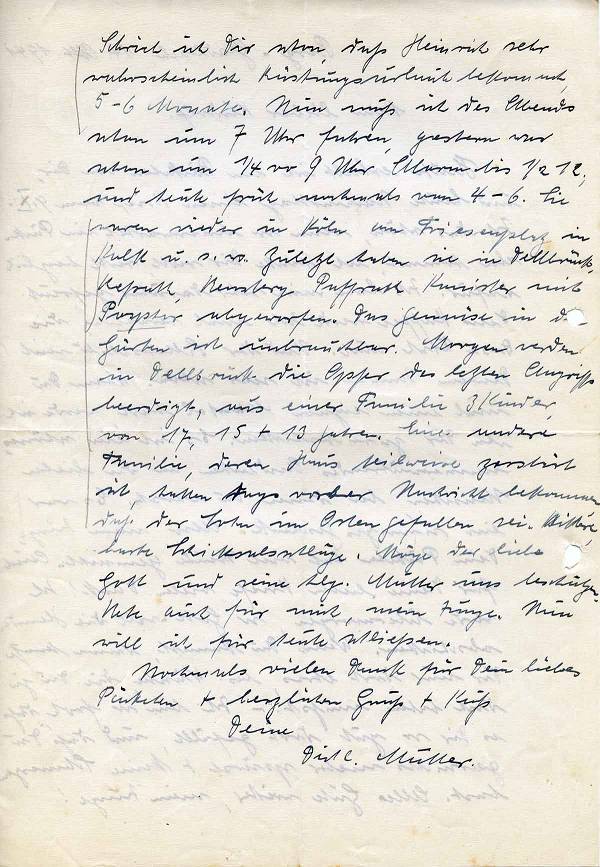 Schrieb ich Dir schon, daß Heinrich sehr
wahrscheinlich Rüstungsurlaub bekommt,
5-6 Monate. Nun muß ich des Abends
schon um 7 Uhr fahren, gestern war
schon um 1/4 vor 9 Uhr Alarm bis 1/2 12,
und heute früh nochmals von 4-6. Sie
waren wieder in Köln am Friesenplatz in
Kalk u. s. w. Zuletzt haben sie in Dellbrück,
Refrath, Hensberg Paffrath Kanister mit
Phosphor abgeworfen. Das Gemüse in d
Gärten ist unbrauchbar. Morgen werden
in Dellbrück die Opfer des letzten Angriffs
beerdigt, aus einer Familie 3 Kinder,
von 17, 15 + 13 Jahren. Eine andere
Familie, deren Haus teilweise zerstört
ist, hatten tags vorher Nachricht bekommen
daß der Sohn im Osten gefallen sei.
harte Schicksalsschläge. Möge der liebe
Gott und seine hlg. Mutter uns beschützen.
Bete auch für mich, mein Junge. Nun
will ich für heute schließen.
Nochmals vielen Dank für Dein liebes
Päckchen + herzlichen Gruß + Kuß
Deine
Dich l. Mutter.